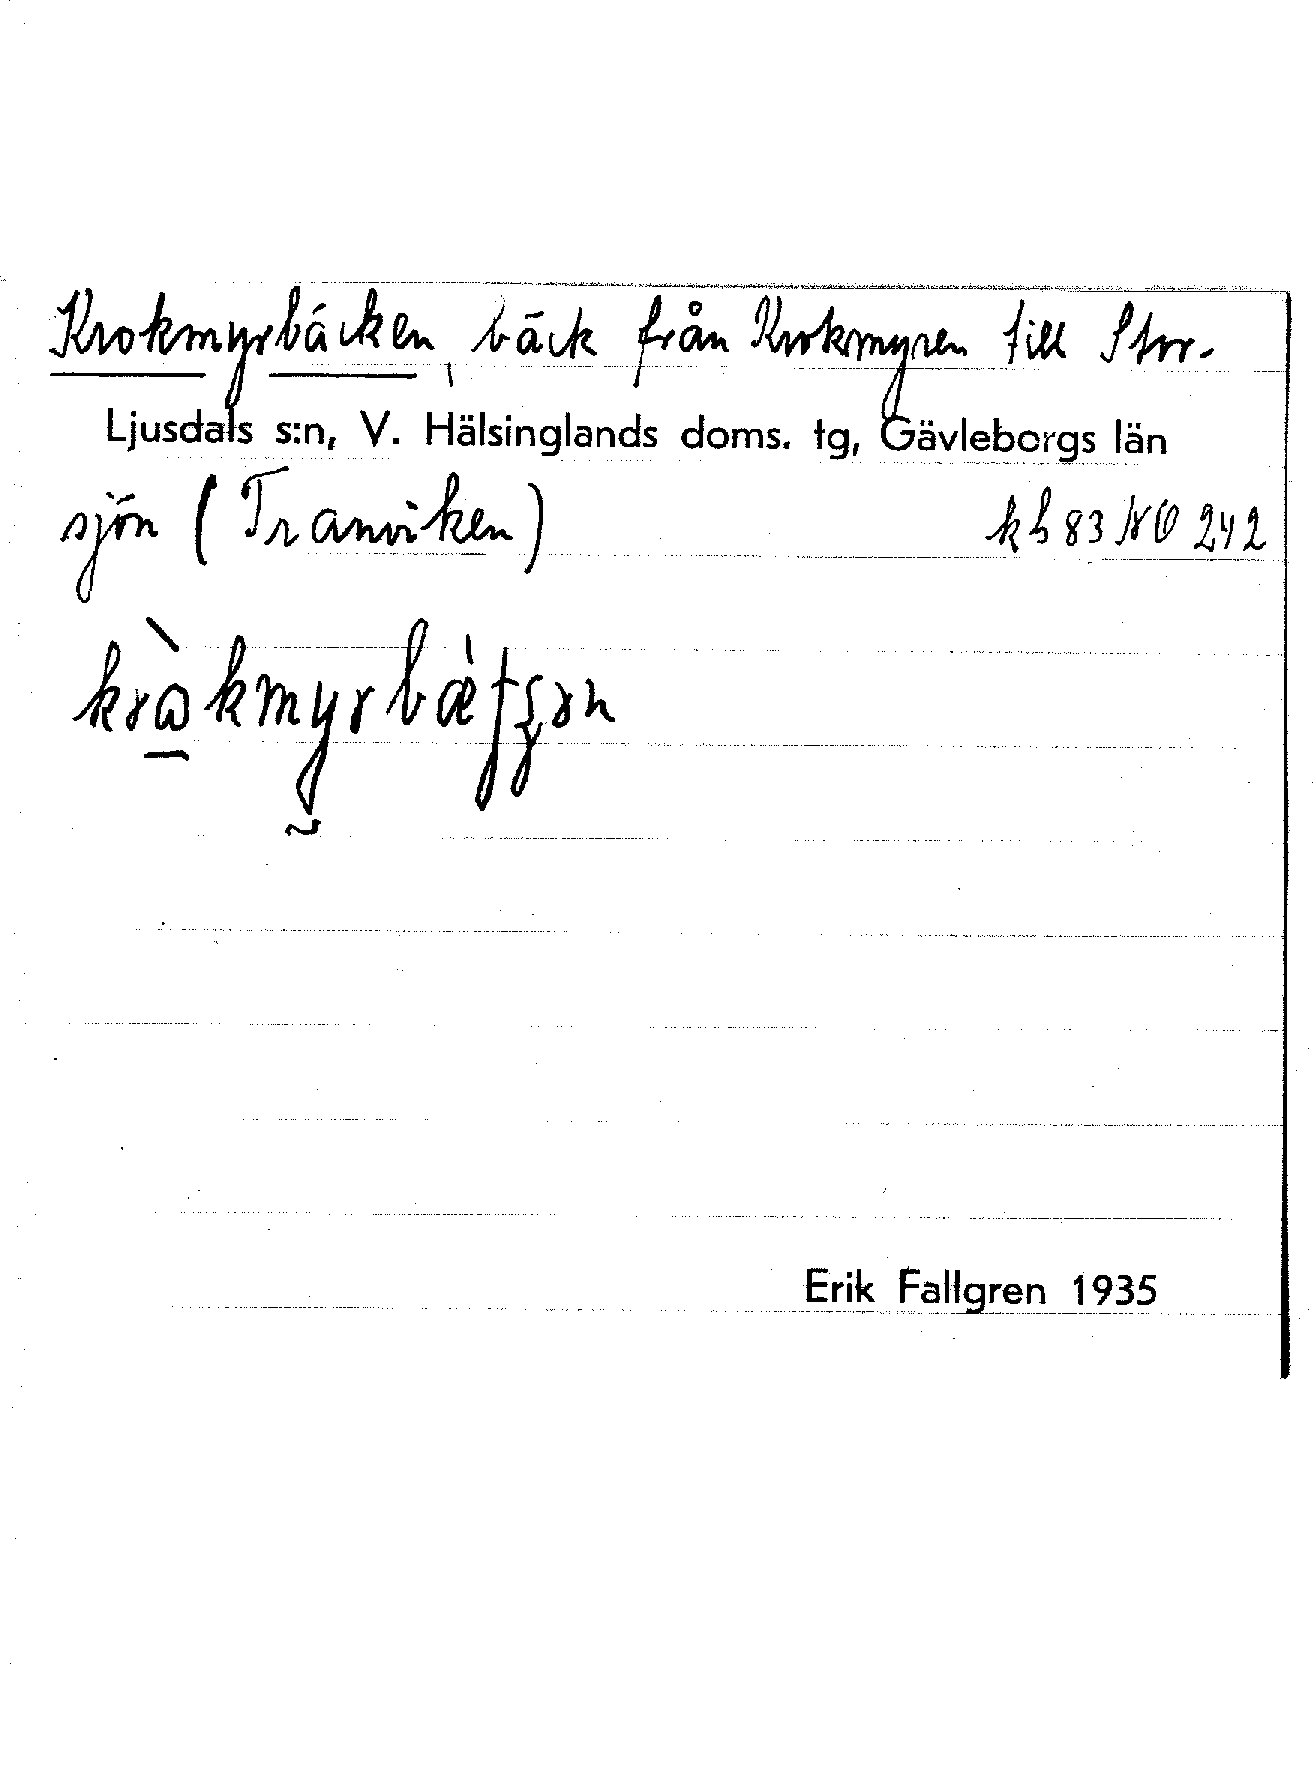 Krokmyrbäcken, bäck från Krokmyren till Stor-
Ljusdals s:n, V. Hälsinglands doms. tg, Gävleborgs län
sjön (Tranviken) kb 83 NO 242
Erik Fallgren 1935